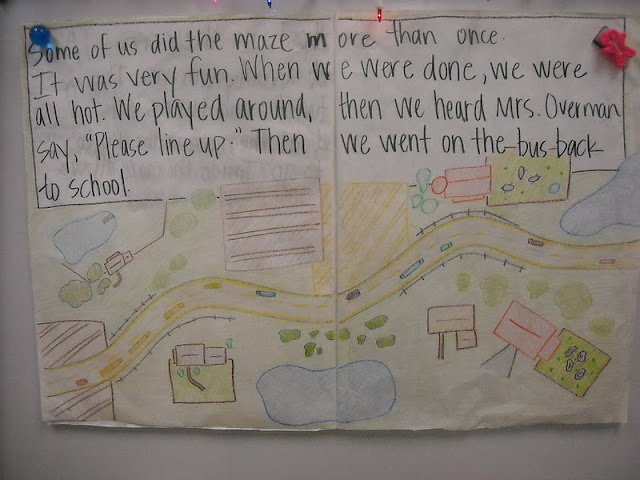 Some of us did the maze more than once.
It was very fun. When we were done, we were
all hot. We played around, then we heard Mrs. Overman
say, "Please line up." Then we went on the bus back
to school.